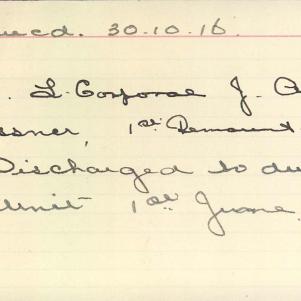 ued. 30.10.16.
. L. Corporal J. A
ssner, 1st Remount
Discharged to du
Unit 1st June